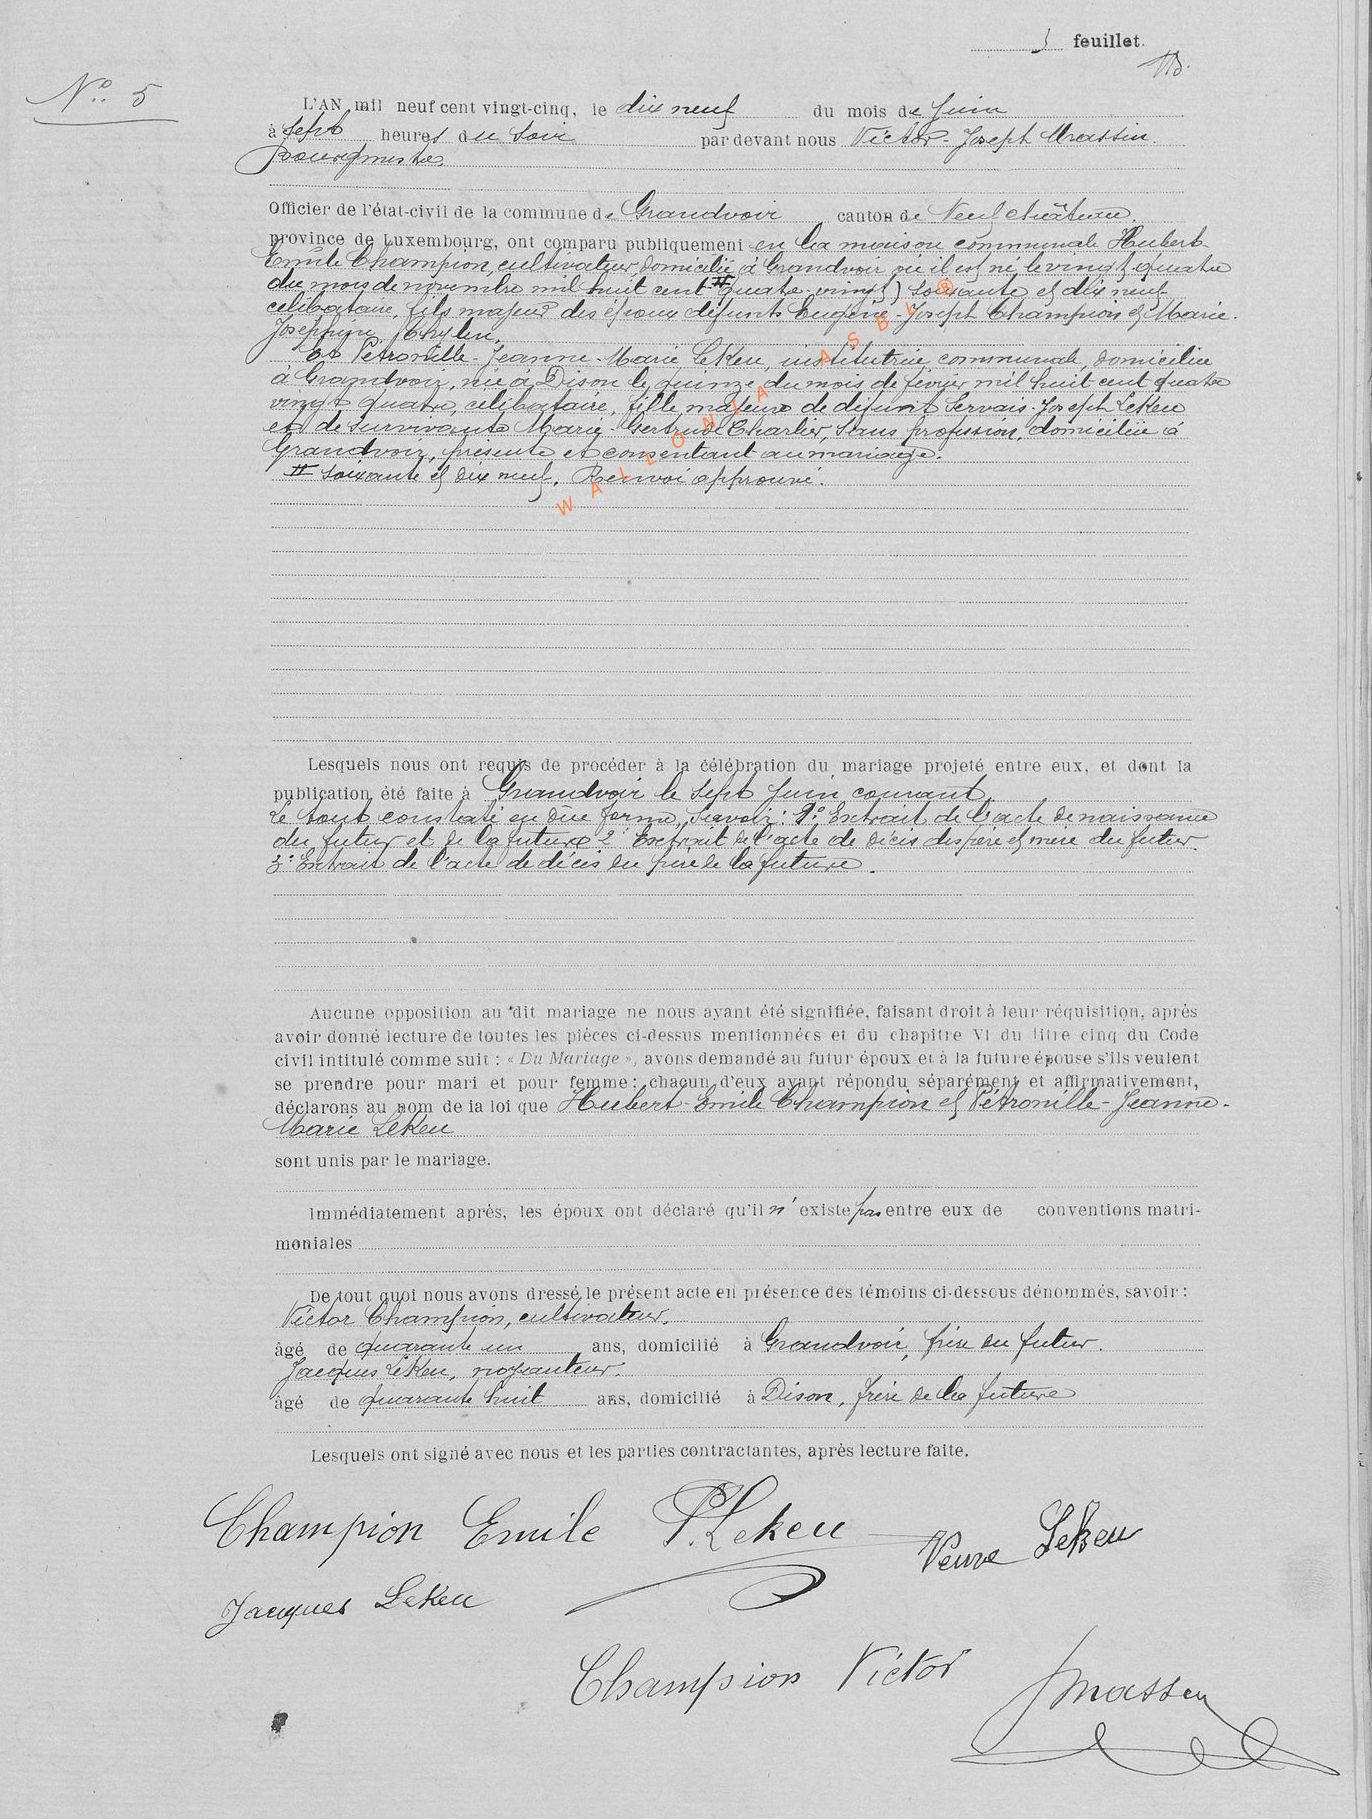 3 feuillet.
N° 5
L'AN mil neuf cent vingt-cinq, le dix neuf du mois de Juin
à sept heures du soir par devant nous Victor-Joseph Massin.
bourgmestre
Officier de l'état-civil de la commune de Grandvoir canton de Neufchâteau.
province de Luxembourg, ont comparu publiquement en la maison communale Hubert-
Emile Champion, cultivateur, domicilié à Grandvoir où il est né le vingt quatre
du mois de novembre mil huit cent # quatre-vingt) soixante et dix neuf
célibataire, fils majeur des époux défunts Eugène-Joseph Champion et Marie-
Josephine
Et Pétronille-Jeanne-Marie Lekeu, institutrice communale, domiciliée
à Grandvoir, née à Dison le quinze du mois de février mil huit cent quatre
vingt quatre, célibataire, fille majeure de défunt Servais-Joseph Lekeu
et de survivante Marie-Gertrude Charlier, sans profession, domiciliée à
Grandvoir, présente et consentant au mariage.
# soixante et dix neuf. Renvoi approuvé.
WALLONIA ASBL ®
Lesquels nous ont requis de procéder à la célébration du mariage projeté entre eux, et dont la
publication été faite à Grandvoir le sept Juin courant.
Le tout constaté en due forme, savoir: 1° Extrait de l'acte de naissance
du futur et de la future 2° Extrait de l'acte de décès des père et mère du futur.
3° Extrait de l'acte de décès du père de la future.
Aucune opposition au dit mariage ne nous ayant été signifiée, faisant droit à leur réquisition, après
avoir donné lecture de toutes les pièces ci-dessus mentionnées et du chapitre VI du titre cinq du Code
civil intitulé comme suit : « Du Mariage », avons demandé au futur époux et à la future épouse s'ils veulent
se prendre pour mari et pour femme : chacun d'eux ayant répondu séparément et affirmativement,
déclarons au nom de la loi que Hubert-Emile Champion et Pétronille-Jeanne-
Marie Lekeu
sont unis par le mariage.
Immédiatement après, les époux ont déclaré qu'il n'existe pas entre eux de conventions matri-
moniales
De tout quoi nous avons dressé le présent acte en présence des témoins ci-dessous dénommés, savoir :
Victor Champion, cultivateur.
âgé de quarante un ans, domicilié à Grandvoir, frère du futur.
Jacques Lekeu, noyauteur.
âgé de quarante huit ans, domicilié à Dison, frère de la future
Lesquels ont signé avec nous et les parties contractantes, après lecture faite.
Champion Emile P. Lekeu Veuve Lekeu
Jacques Lekeu
Champion Victor Massin